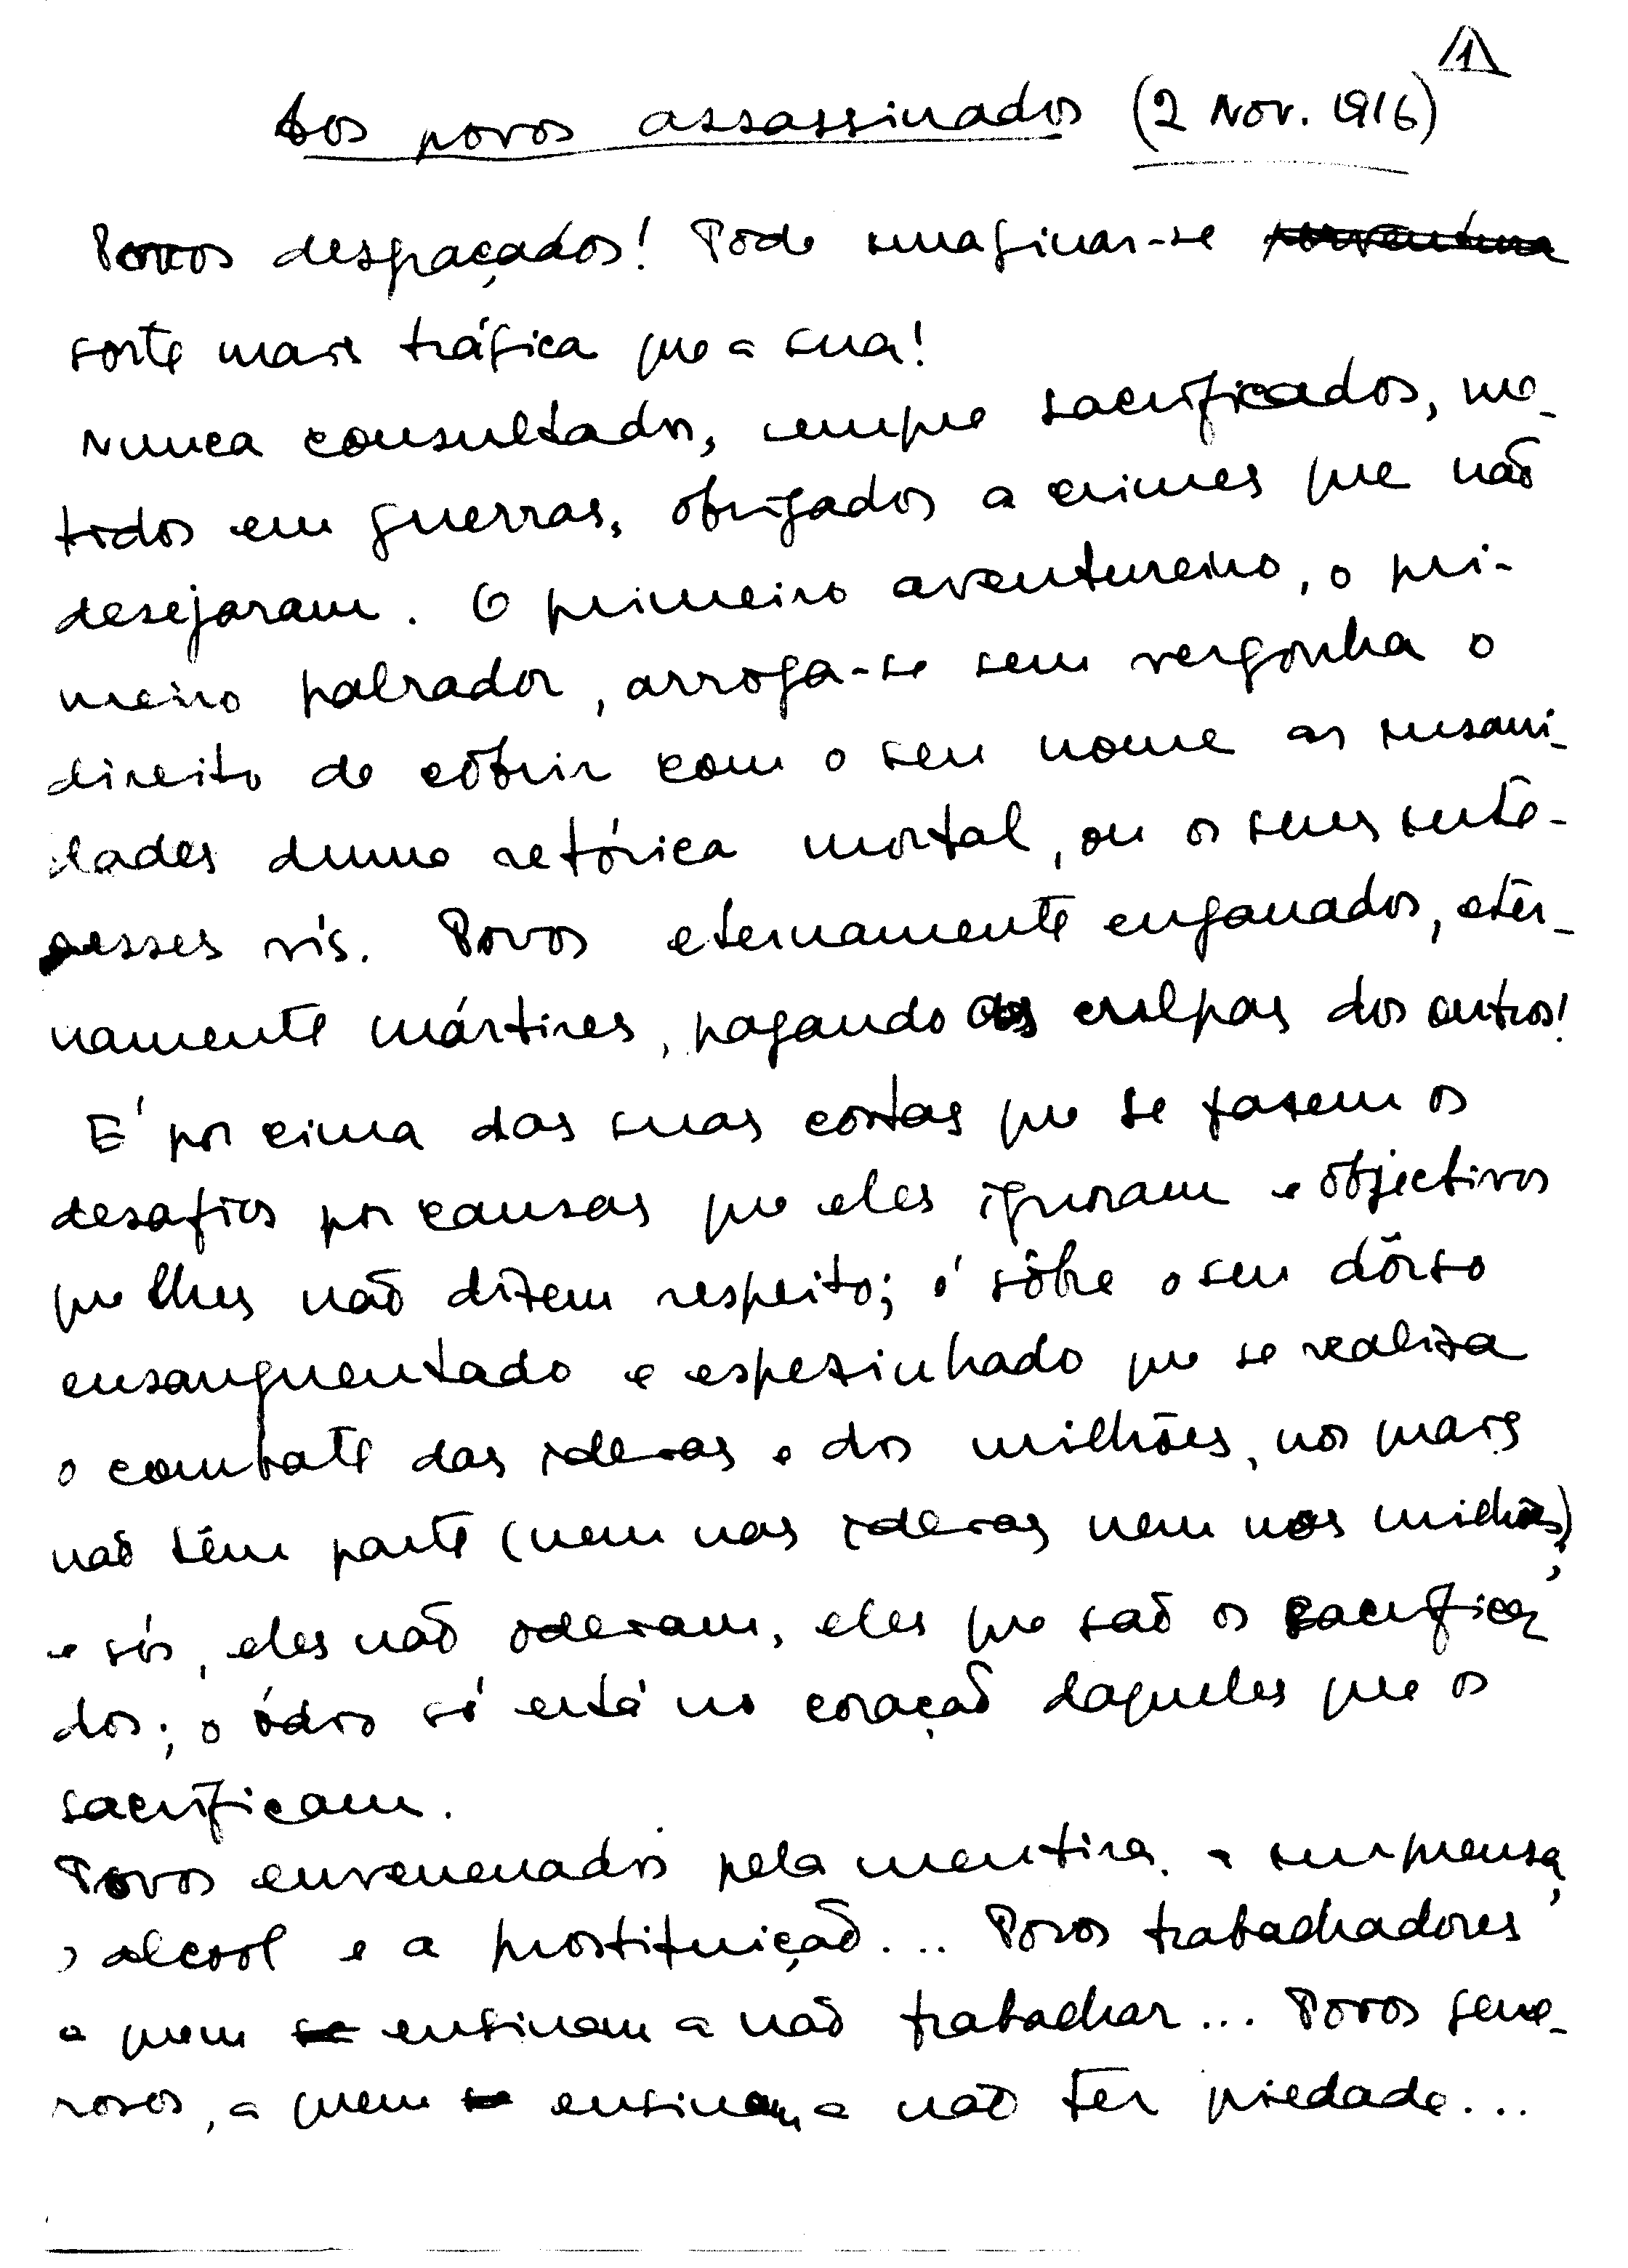 1
Aos povos assassinados (2 Nov. 1916)
Povos desgraçados! Pode imaginar-se porventura
sorte mais trágica que a sua!
Nunca consultados, sempre sacrificados, me-
tidos em guerras, obrigados a crimes que não
desejaram. O primeiro aventureiro, o pri-
meiro palrador, arroga-se sem vergonha o
direito de cobrir com o seu nome as insani-
dades duma retórica mortal, ou os seus inte-
resses vis. Povos eternamente enganados, eter-
namente mártires, pagando as culpas dos outros!
É por cima das suas costas que se fazem os
desafios por causas que eles ignoram e objectivos
que lhes não dizem respeito; é sôbre o seu dôrso
ensanguentado e espezinhado que se realiza
o combate das ideias e dos milhões, nos quais
não têm parte (nem nas ideias nem nos milhões);
e sós, eles não odeiam, eles que são os sacrifica
dos; o ódio só está no coração daqueles que os
sacrificam.
Povos envenenados pela mentira, a imprensa,
o alcool e a prostituição... Povos trabalhadores,
a quem se ensinam a não trabalhar... Povos gene-
rosos, a quem se ensinam a não ter piedade...